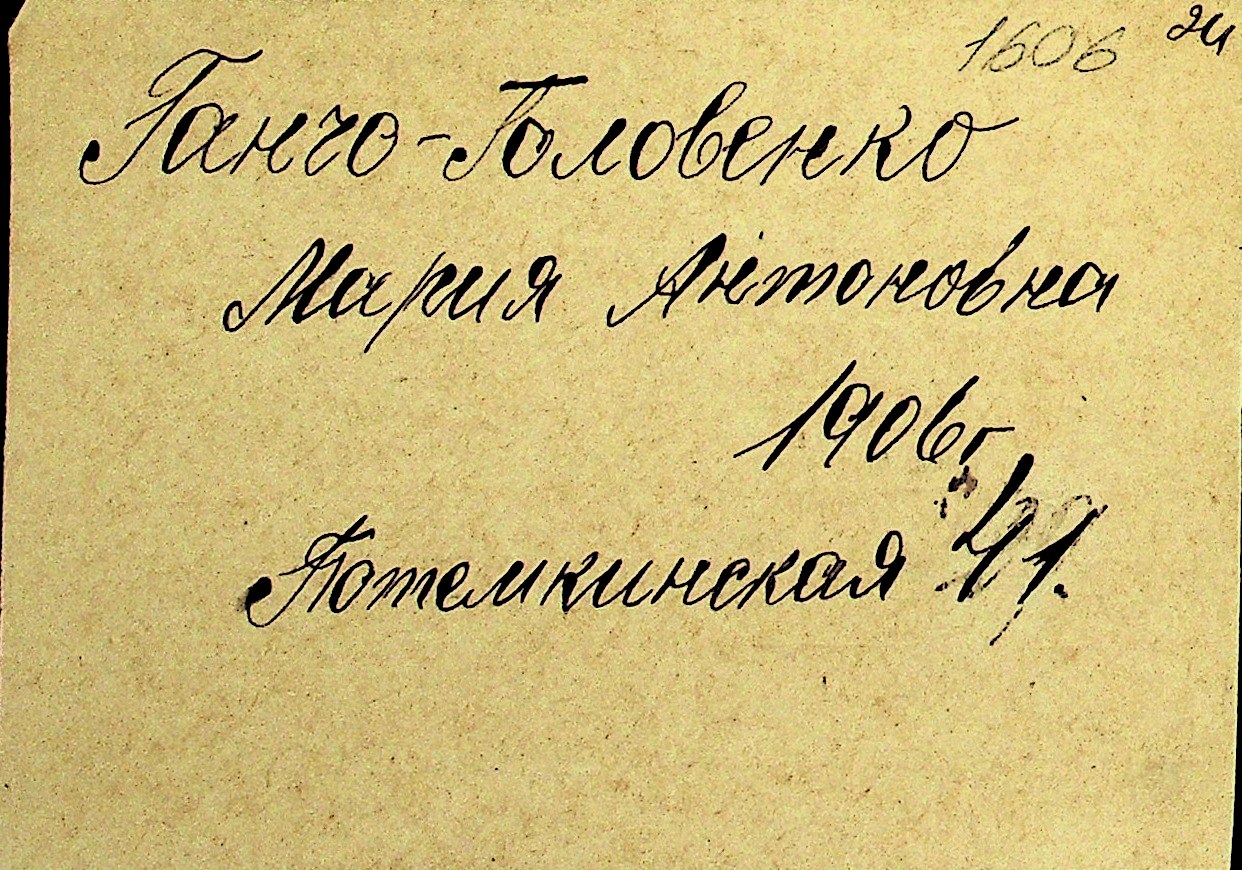 1606 24
Ганчо-Головенко
Мария Антоновна
1906г
Потемкинская 41.